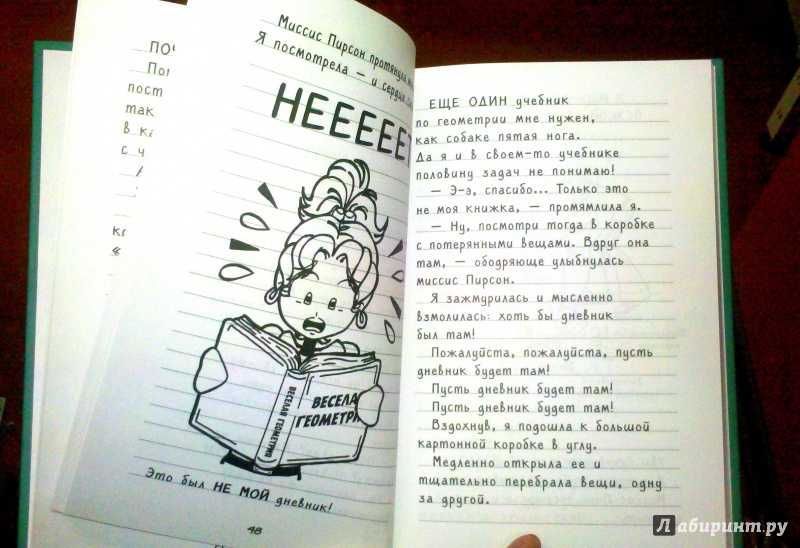 ПОЧ
Пог
пост
так
в ка
с ч
ко
«
Миссис Пирсон протянула
Я посмотрела — и сердце
НЕЕЕЕЕТ
ВЕСЕЛАЯ ГЕОМЕТРИЯ
ВЕСЕЛА
ГЕОМЕТРИ
Это был НЕ МОЙ дневник!
48
ЕЩЕ ОДИН учебник
по геометрии мне нужен,
как собаке пятая нога.
Да я и в своем-то учебнике
половину задач не понимаю!
— Э-э, спасибо... Только это
не моя книжка, — промямлила я.
— Ну, посмотри тогда в коробке
с потерянными вещами. Вдруг она
там, — ободряюще улыбнулась
миссис Пирсон.
Я зажмурилась и мысленно
взмолилась: хоть бы дневник
был там!
Пожалуйста, пожалуйста, пусть
дневник будет там!
Пусть дневник будет там!
Пусть дневник будет там!
Вздохнув, я подошла к большой
картонной коробке в углу.
Медленно открыла ее и
тщательно перебрала вещи, одну
за другой.
Лабиринт.ру